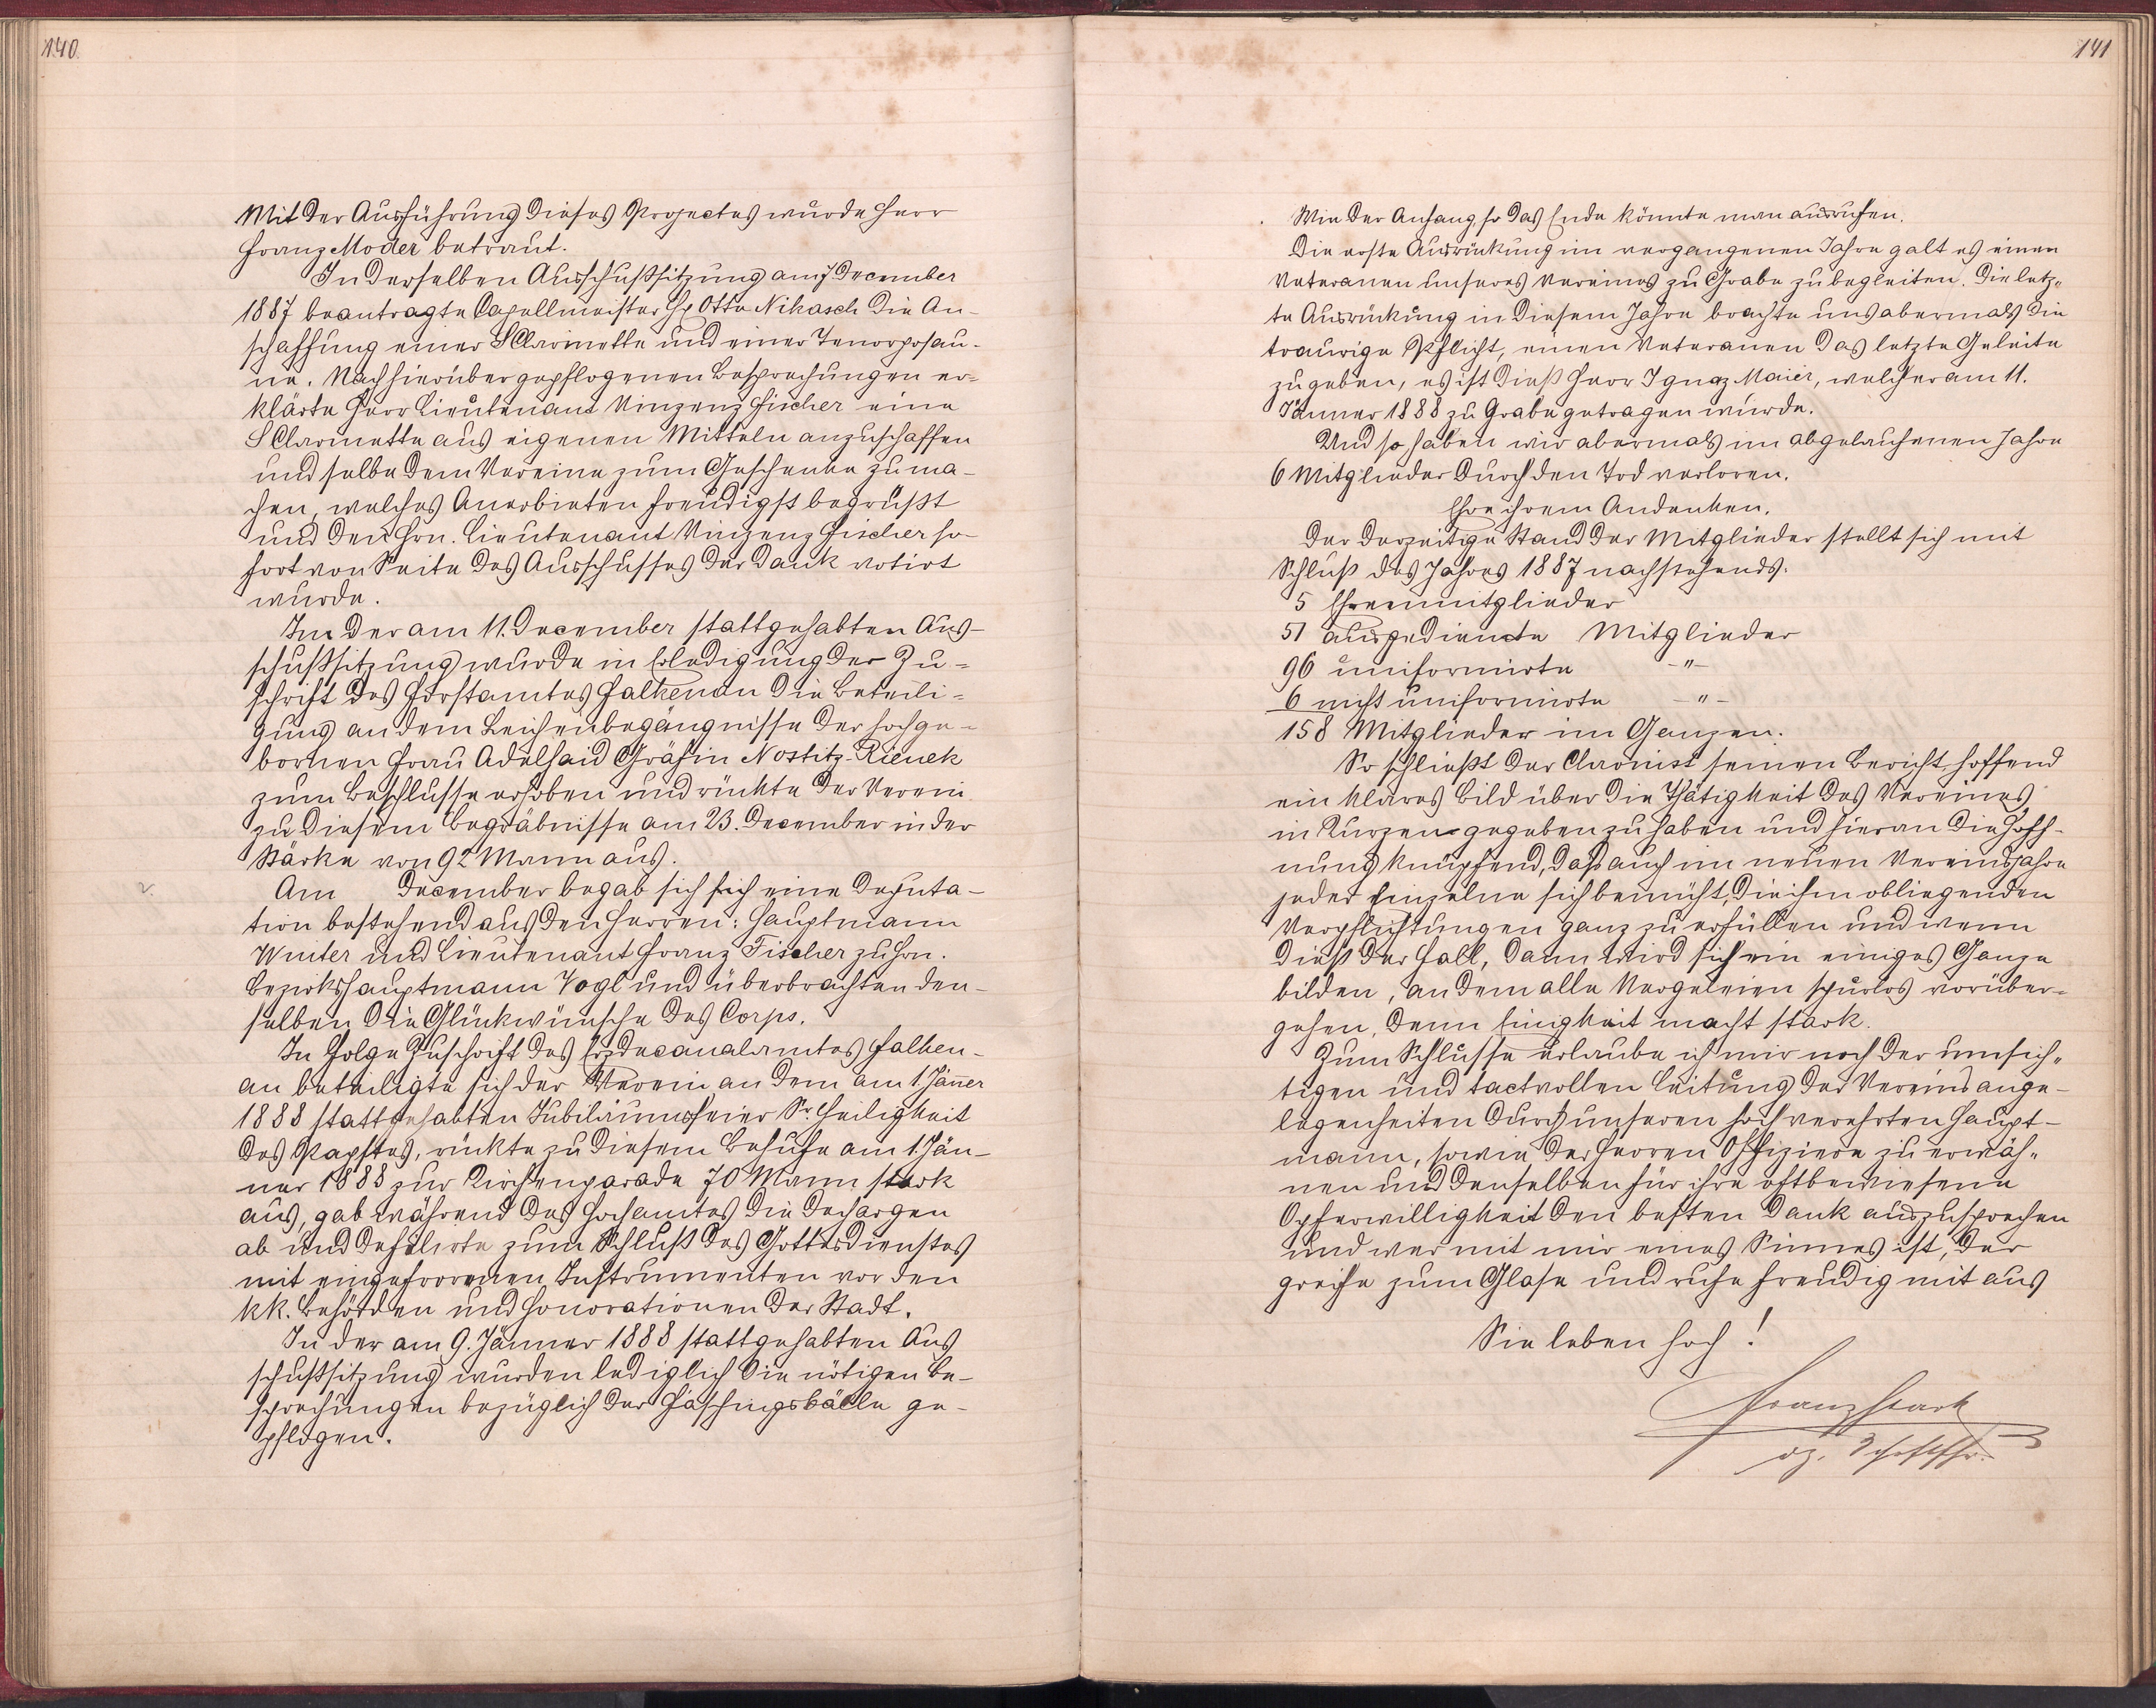 140.
Mit der Ausführung dieses Projectes wurde Herr
Franz Moder betraut.
In derselben Ausschußsitzung am 7 December
1887 beantragte Capellmeister H. Otto Nikasch die An-
schaffung einer SClarinette und einer Tenorposau-
ne. Nach hierüber gepflogenen Besprechungen er-
klärte Herr Lieutenant Vinzenz Fischer eine
SClarinette aus eigenen Mitteln anzuschaffen
und selbe dem Vereine zum Geschenke zu ma-
chen, welches Anerbieten freudigst begrüßt
und den Hrn. Lieutenant Vinzenz Fischer so-
fort von Seite des Ausschusses der Dank votirt
wurde.
In der am 11. December stattgehabten Aus-
schußsitzung wurde in Erledigung der Zu-
schrift des Forstamtes Falkenau die Beteili-
gung an dem Leichenbegängnisse der hochge-
bornen Frau Adelhaid Gräfin Nostitz-Rienek
zum Beschlusse erhoben und rückte der Verein
zu diesem Begräbnisse am 23. December in der
Stärke von 92 Mann aus.
Am December begab sich sich eine Deputa-
tion bestehend aus den Herren: Hauptmann
Winter und Lieutenant Franz Fischer zu Hrn.
Bezirkshauptmann Vogl und überbrachten den-
selben die Glückwünsche des Corps.
In Folge Zuschrift des Erzdecanalamtes Falken-
au beteiligte sich der Verein an dem am 1. Jäner
1888 stattgehabten Jubiläumsfeier Sr. Heiligkeit
des Papstes, rückte zu diesem Behufe am 1. Jän-
ner 1888 zur Kirchenparade 70 Mann stark
aus, gab während des Hochamtes die Dechargen
ab und defilirte zum Schluß des Gottesdienstes
mit eingefrorenen Instrumenten vor den
kk. Behörden und Honorationen der Stadt.
In der am 9. Jänner 1888 stattgehabten Aus
schußsitzung wurden lediglich die nötigen Be-
sprechungen bezüglich der Faschingsbälle ge-
pflogen.
141
Wie der Anfang so das Ende könnte man ausrufen.
Die erste Ausrückung im vergangenen Jahre galt es einen
Veteranen unseres Vereines zu Grabe zu begleiten. Die letz-
te Ausrückung in diesem Jahre brachte uns abermals die
traurige Pflicht, einen Veteranen das letzte Geleite
zu geben, es ist dieß Herr Ignaz Maier, welcher am 11.
Jänner 1888 zu Grabe getragen wurde.
Und so haben wir abermals im abgelaufenen Jahre
6 Mitglieder durch den Tod verloren.
Ehre ihrem Andenken.
Der derzeitige Stand der Mitglieder stellt sich mit
Schluß des Jahres 1887 nachstehends.
5 Ehrenmitglieder
51 ausgediente Mitglieder
96 uniformirte -"-
6 nicht uniformirte -"-
158 Mitglieder im Ganzen.
So schließt der Chronist seinen Bericht hoffend
ein klares Bild über die Thätigkeit des Vereines
in Kurzen gegeben zu haben und hieran die Hoff-
nung knüpfend, daß auch im neuen Vereinsjahre
jeder Einzelne sich bemüht, die ihm obliegenden
Verpflichtungen ganz zu erfüllen und wenn
dieß der Fall, dann wird sich ein einiges Ganze
bilden, an dem alle Nergeleien spurlos vorüber-
gehen, denn Einigkeit macht stark.
Zum Schlusse erlaube ich mir noch der umsich-
tigen und tactvollen Leitung der Vereinsange-
legenheiten durch unseren hochverehrten Haupt-
mann, sowie der Herren Offiziere zu erwäh-
nen und denselben für ihre oftbewiesene
Opferwilligkeit den besten Dank auszusprechen
und wer mit mir eines Sinnes ist, der
greife zum Glase und rufe freudig mit aus
Sie leben hoch!
Franz Stark
dz. Schriftfhr.